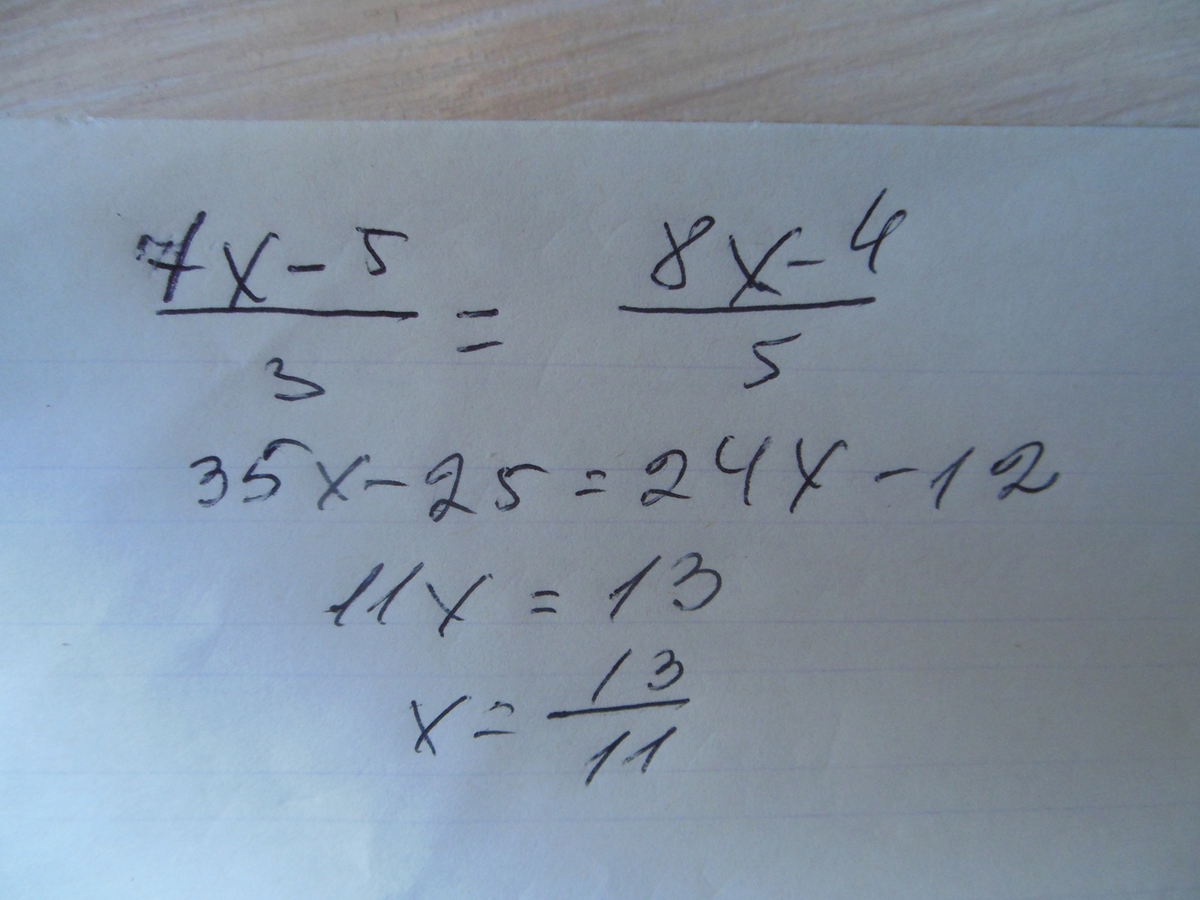 7x-5/3 = 8x-4/5
35x-25=24x-12
11x=13
x=13/11